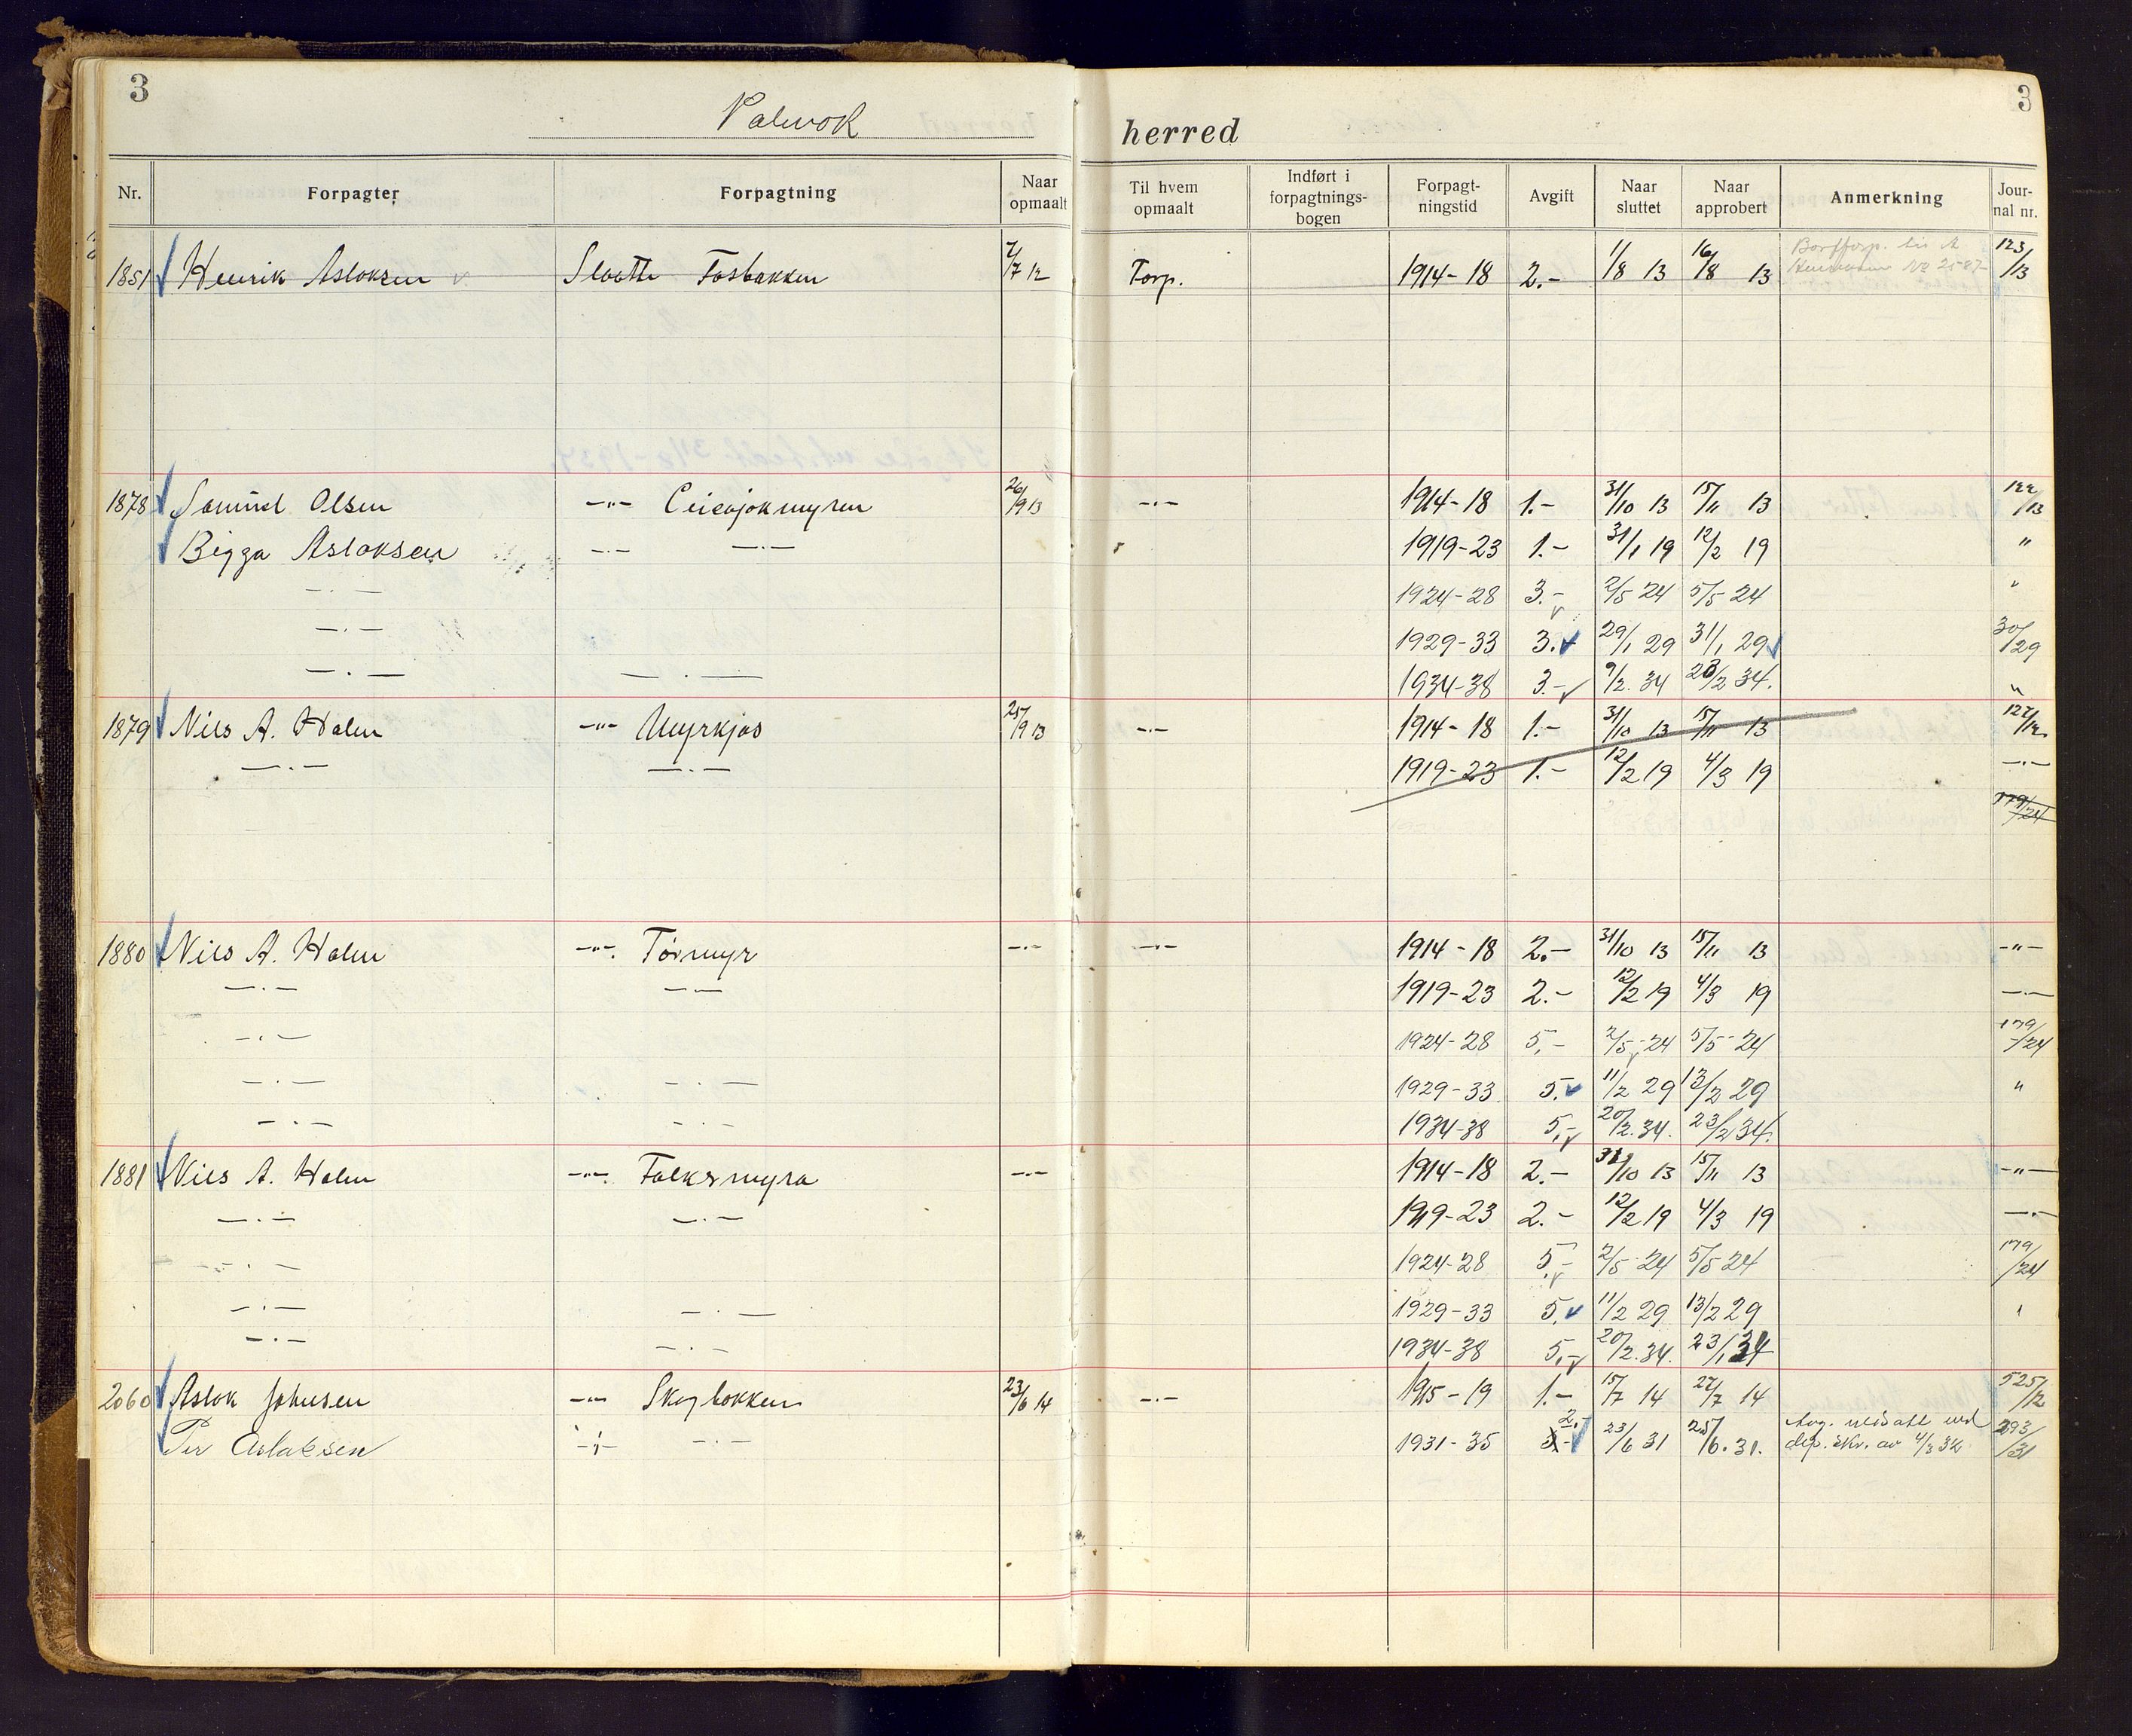 3
3
Polmak
herred
Nr. Forpagter Forpagtning Naar opmaalt Til hvem opmaalt Indført i forpagtnings-bogen Forpagt-ningstid Avgift Naar sluttet Naar approbert Anmerkning Jour-nal nr.
1851 Henrik Asloksen Slaatte Fosbakken 7/7 12 Forp. 1914-18 2.- 1/8 13 16/8 13 123/13
1878 Samuel Olsen -"- 26/9 13 -"- 1914-18 1.- 31/10 13 15/11 13 122/13
Bigga Asloksen -"- -"- 1919-23 1.- 31/1 19 12/2 19 "
-"- 1924-28 3.- 2/5 24 5/5 24 "
-"- 1929-33 3. 29/1 29 31/1 29 30/29
-"- -"- 1934-38 3.- 9/2. 34 23/2 34. "
1879 Nils A. Halm -"- Myrkjos 25/9 13 -"- 1914-18 1.- 31/10 13 15/11 13 122/12
-"- -"- 1919-23 1.- 12/2 19 4/3 19 -"-
179/24
1880 Nils A. Halm -"- Tørmyr -"- -"- 1914-18 2.- 31/10 13 15/11 13 -"-
-"- -"- 1919-23 2.- 12/2 19 4/3 19 -"-
-"- 1924-28 5.- 2/5 24 5/5 24 179/24
-"- -"- 1929-33 5. 11/2 29 13/2 29 "
-"- -"- 1934-38 5,- 20/2. 34. 23/2 34.
1881 Nils A. Halm -"- Falksmyra -"- 1914-18 2.- 31/10 13 15/11 13 -"-
-"- -"- 1919-23 2.- 12/2 19 4/3 19 -"-
-"- 1924-28 5,- 2/5 24 5/5 24 179/24
-"- -"- 1929-33 5, 11/2 29 13/2 29 "
-"- -"- 1934-38 5,- 20/2. 34. 23/1 34
2060 Aslok Johnsen -"- Skogbakken 23/6 14 -"- 1915-19 1.- 15/7 14 27/7 14 525/12
Per Aslaksen -"- -"- 1931-35 2.- 23/6 31 25/6. 31. Avg. nedsatt ved 293/31
dep. skr. av 4/3 32